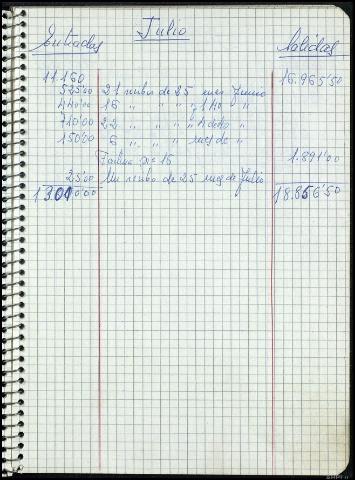 Julio
Entradas Salidas
11.160 16.965'50
525'00 21 recibos de 25 mes Junio
440'00 16 " " " " "
710'00 22 " " " "
150'00 6 " " " mes de "
Factura Nº 16 1.891'00
25'00 Un recibo de 25 mes de Julio
13.010'00 18.856'50